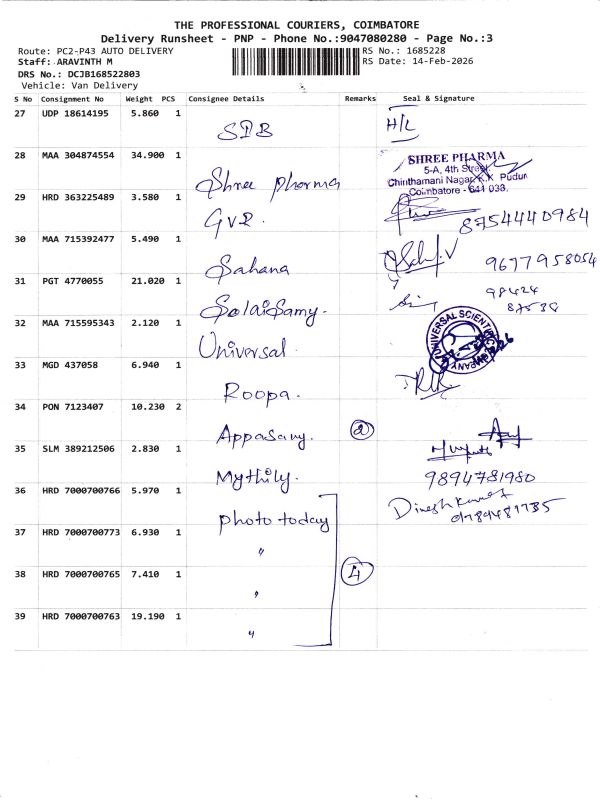 THE PROFESSIONAL COURIERS, COIMBATORE
Delivery Runsheet - PNP - Phone No.:9047080280 - Page No.:3
Route: PC2-P43 AUTO DELIVERY
RS No.: 1685228
Staff: ARAVINTH M
RS Date: 14-Feb-2026
DRS No.: DCJB168522803
Vehicle: Van Delivery
S No Consignment No Weight PCS Consignee Details Remarks Seal & Signature
27 UDP 18614195 5.860 1 SDB H/L
28 MAA 304874554 34.900 1 Shree pharma
SHREE PHARMA
5-A, 4th Street
Chinthamani Nagar, K.K. Pudur
Coimbatore - 641 038.
29 HRD 363225489 3.580 1 GVR. 8754440984
30 MAA 715392477 5.490 1 Sahana 9677958054
31 PGT 4770055 21.020 1 SolaiSamy. 98424
87538
32 MAA 715595343 2.120 1 Universal.
UNIVERSAL SCIENTIFIC COMPANY
33 MGD 437058 6.940 1 Roopa.
34 PON 7123407 10.230 2 Appasamy. 2
35 SLM 389212506 2.830 1 Mythily. 9894781980
36 HRD 7000700766 5.970 1 photo today Dinesh Kumar
9789481735
37 HRD 7000700773 6.930 1 "
38 HRD 7000700765 7.410 1 " 4
39 HRD 7000700763 19.190 1 "